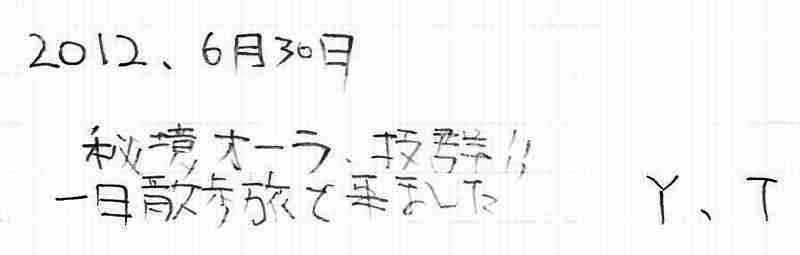 2012、6月30日
秘境オーラ、抜群!!
一日散歩旅で来ました
Y、T